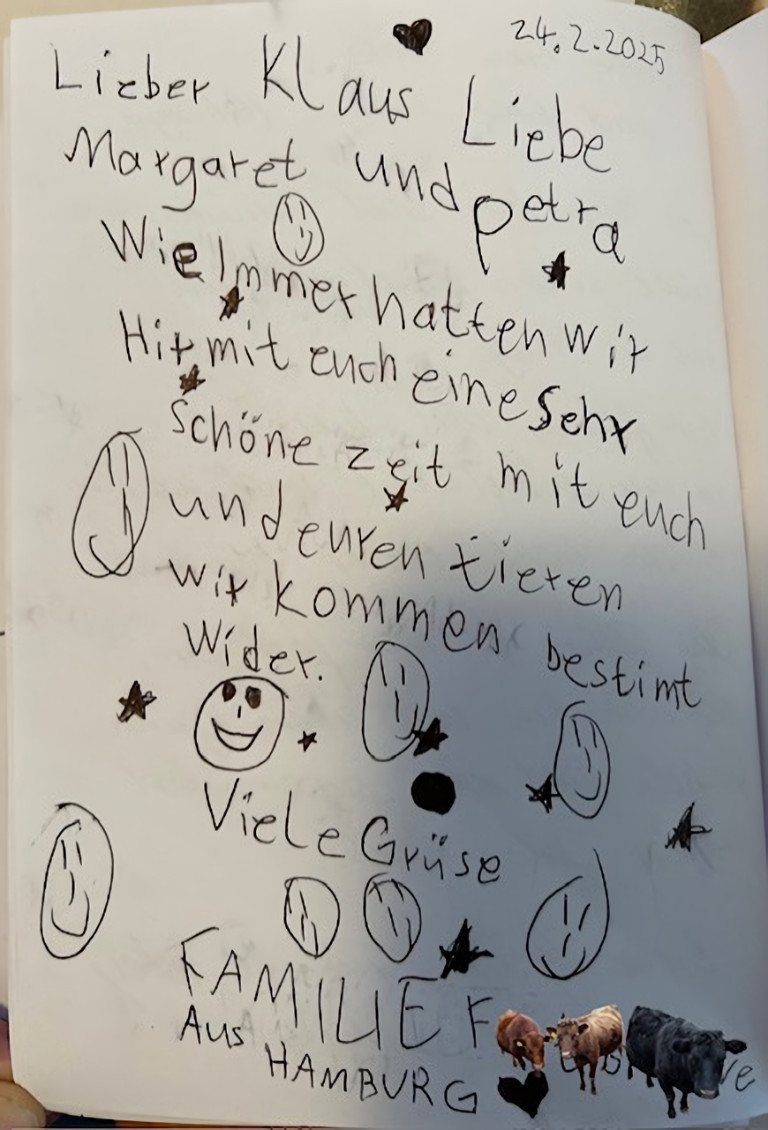 24.2.2025
Lieber Klaus Liebe
Margaret und petra
Wie Immer hatten wir
Hir mit euch eine Sehr
Schöne zeit mit euch
und euren tieren
wir kommen bestimt
Wider.
Viele Grüse
FAMILIE F
Aus HAMBURG